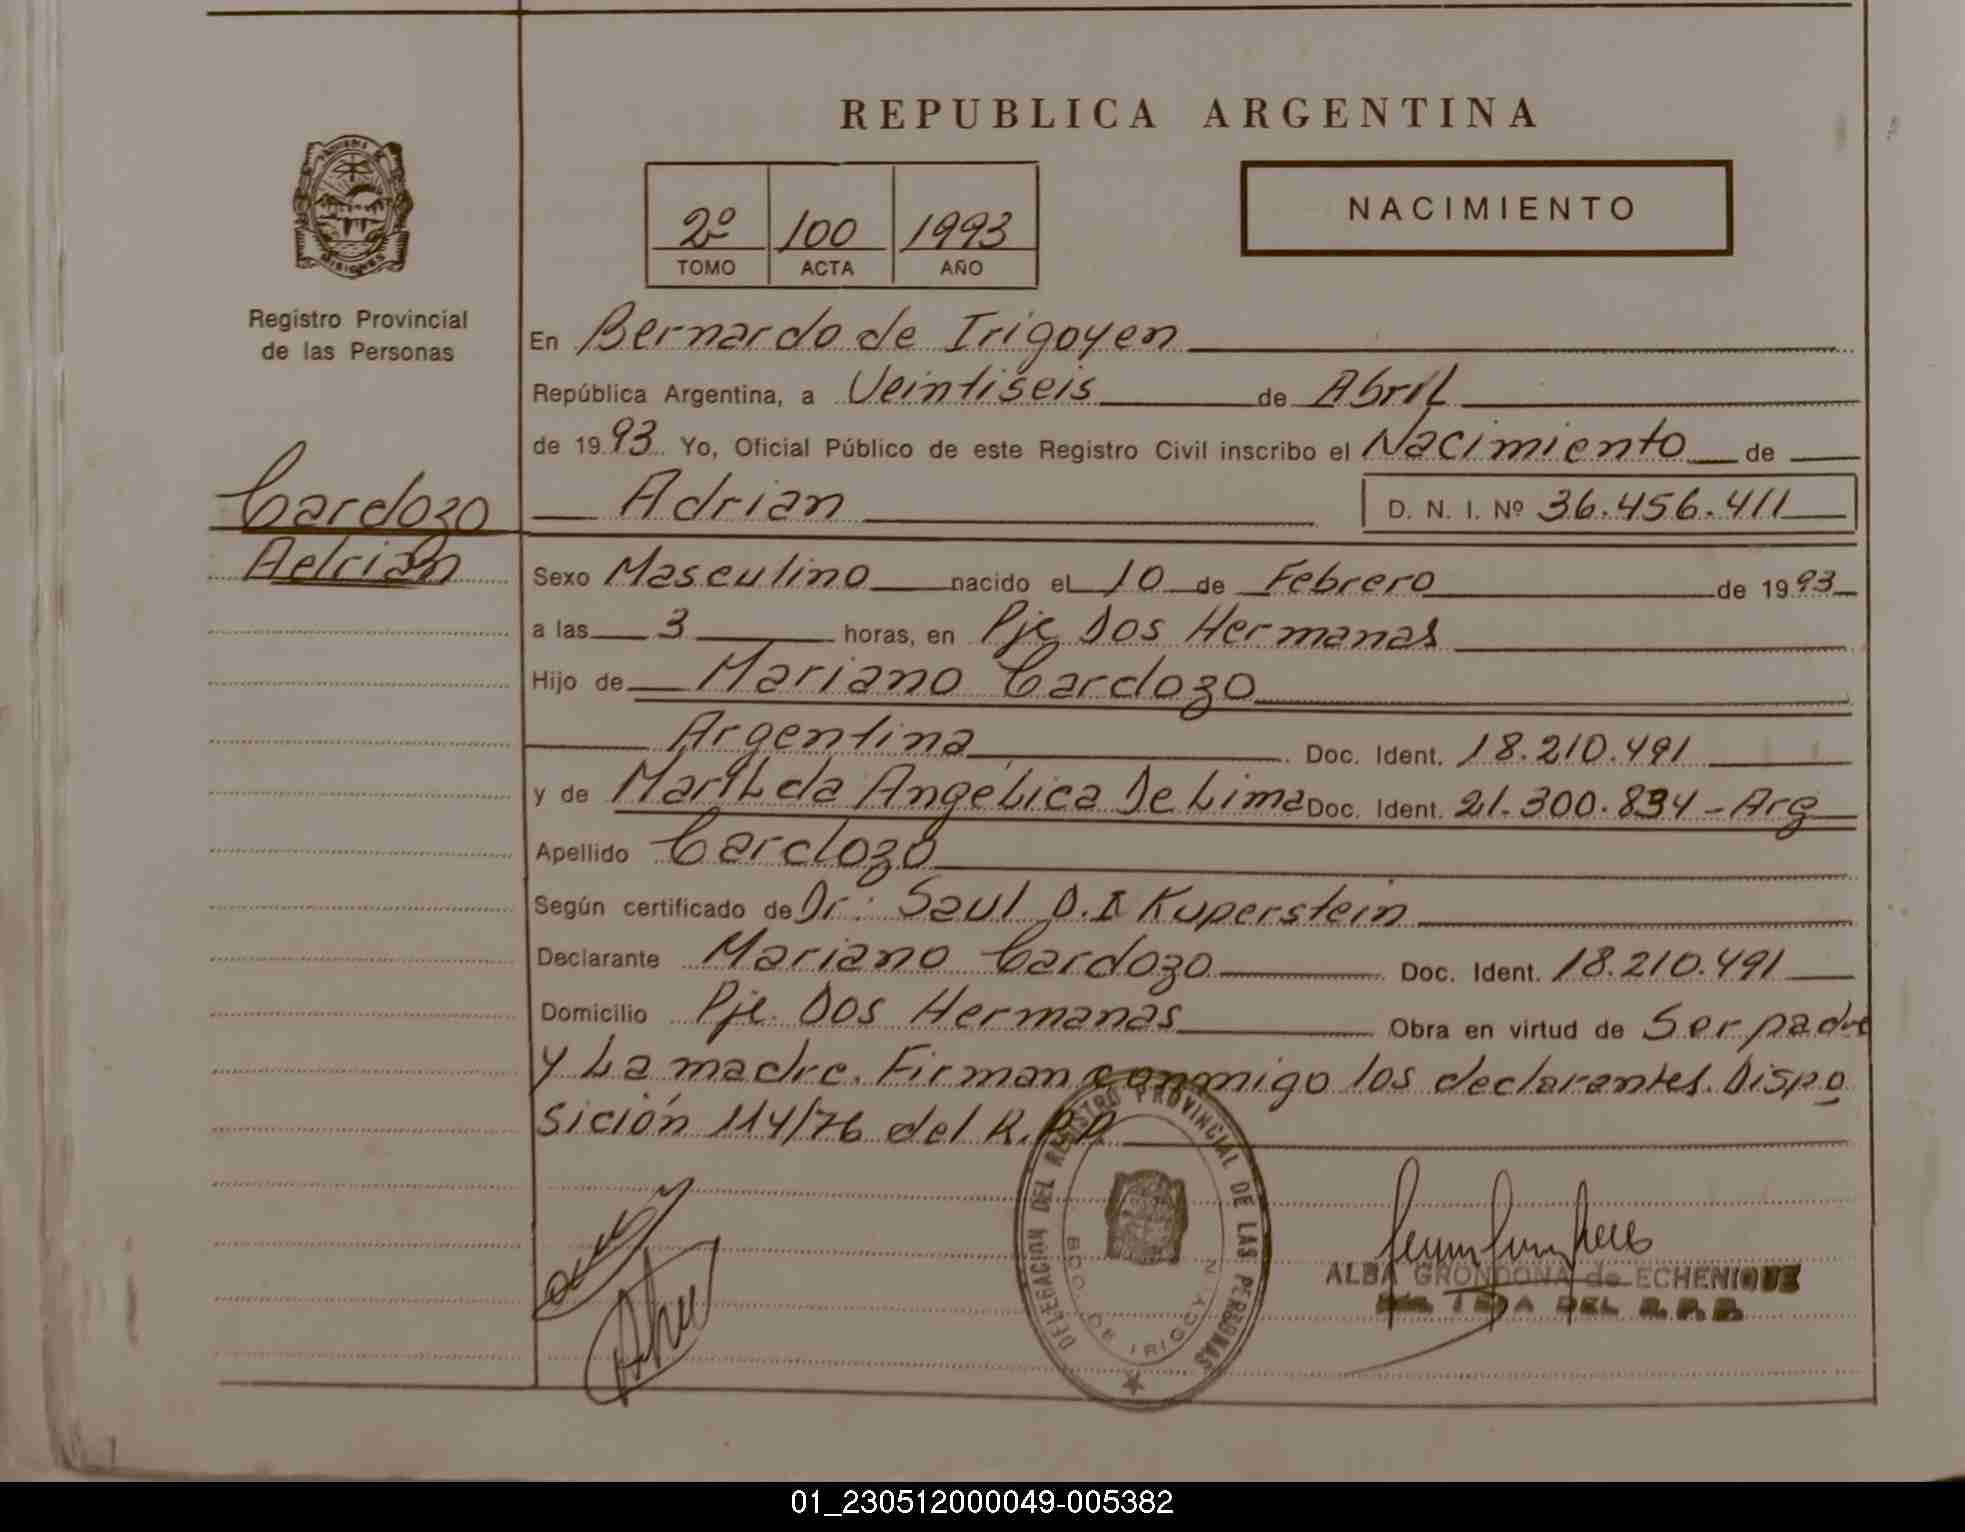 REPUBLICA ARGENTINA
NACIMIENTO
2º 100 1993
TOMO ACTA AÑO
MISIONES
Registro Provincial
de las Personas
Cardozo
Adrian
En Bernardo de Irigoyen
República Argentina, a Veintiseis de Abril
de 1993 Yo, Oficial Público de este Registro Civil inscribo el Nacimiento de
Adrian D. N. I. Nº 36.456.411
Sexo Masculino nacido el 10 de Febrero de 1993
a las 3 horas, en Pje Dos Hermanas
Hijo de Mariano Cardozo
Argentina Doc. Ident. 18.210.491
y de Marilda Angélica De Lima Doc. Ident. 21.300.834 - Arg
Apellido Cardozo
Según certificado de Dr: Saul D.I Kuperstein
Declarante Mariano Cardozo Doc. Ident. 18.210.491
Domicilio Pje. Dos Hermanas Obra en virtud de Ser padre
y La madre. Firman conmigo los declarantes. Dispo
sición 114/76 del R.P.P.
DELEGACION DEL REGISTRO PROVINCIAL DE LAS PERSONAS
BDO. DE IRIGOYEN
ALBA GRONDONA de ECHENIQUE
DEL R. P. P.
01_230512000049-005382